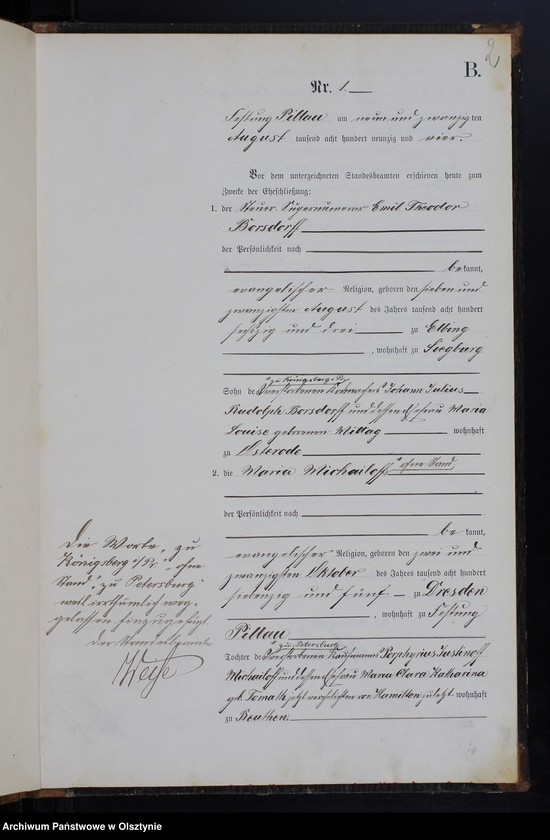 2
B.
Nr. 1.
Festung Pillau am neun und zwanzigsten
August tausend acht hundert neunzig und vier.
Vor dem unterzeichneten Standesbeamten erschienen heute zum
Zwecke der Eheschließung:
1. der Steuer Supernumerar Emil Theodor
Borsdorff
der Persönlichkeit nach
be kannt,
evangelischer Religion, geboren den sieben und
zwanzigsten August des Jahres tausend acht hundert
sechzig und drei zu Elbing
, wohnhaft zu Seeburg
"zu Königsberg i/Pr.
Sohn des verstorbenen Johann Julius
Rudolph Borsdorff und dessen Ehefrau Maria
Louise geborenen Mittag wohnhaft
zu Osterode
2. die Maria Michailoff, "ohne Stand
der Persönlichkeit nach
be kannt,
evangelischer Religion, geboren den zwei und
zwanzigsten Oktober des Jahres tausend acht hundert
siebenzig und fünf zu Dresden
, wohnhaft zu Festung
Pillau
"zu Petersburg
Tochter des verstorbenen Kaufmanns Porphyrius Justinoff
Michailoff und dessen Ehefrau Maria Clara Katharina
geb. Tomath jetzt verehelichten von Hamilton zuletzt wohnhaft
zu Beuthen.
Die Worte "zu
Königsberg i/Pr.", "ohne
Stand", "zu Petersburg"
weil irrthümlich weg-
gelassen einzugefügt
Der Standesbeamte
Weise
Archiwum Państwowe w Olsztynie